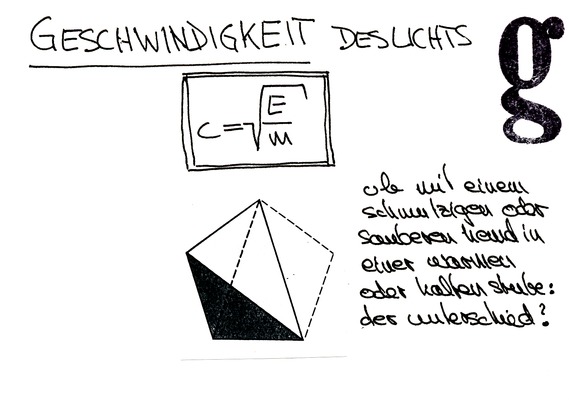 GESCHWINDIGKEIT DES LICHTS
g
c = √E/m
ob mit einem
schmutzigen oder
sauberen Hemd in
einer warmen
oder kalten stube:
der unterschied?